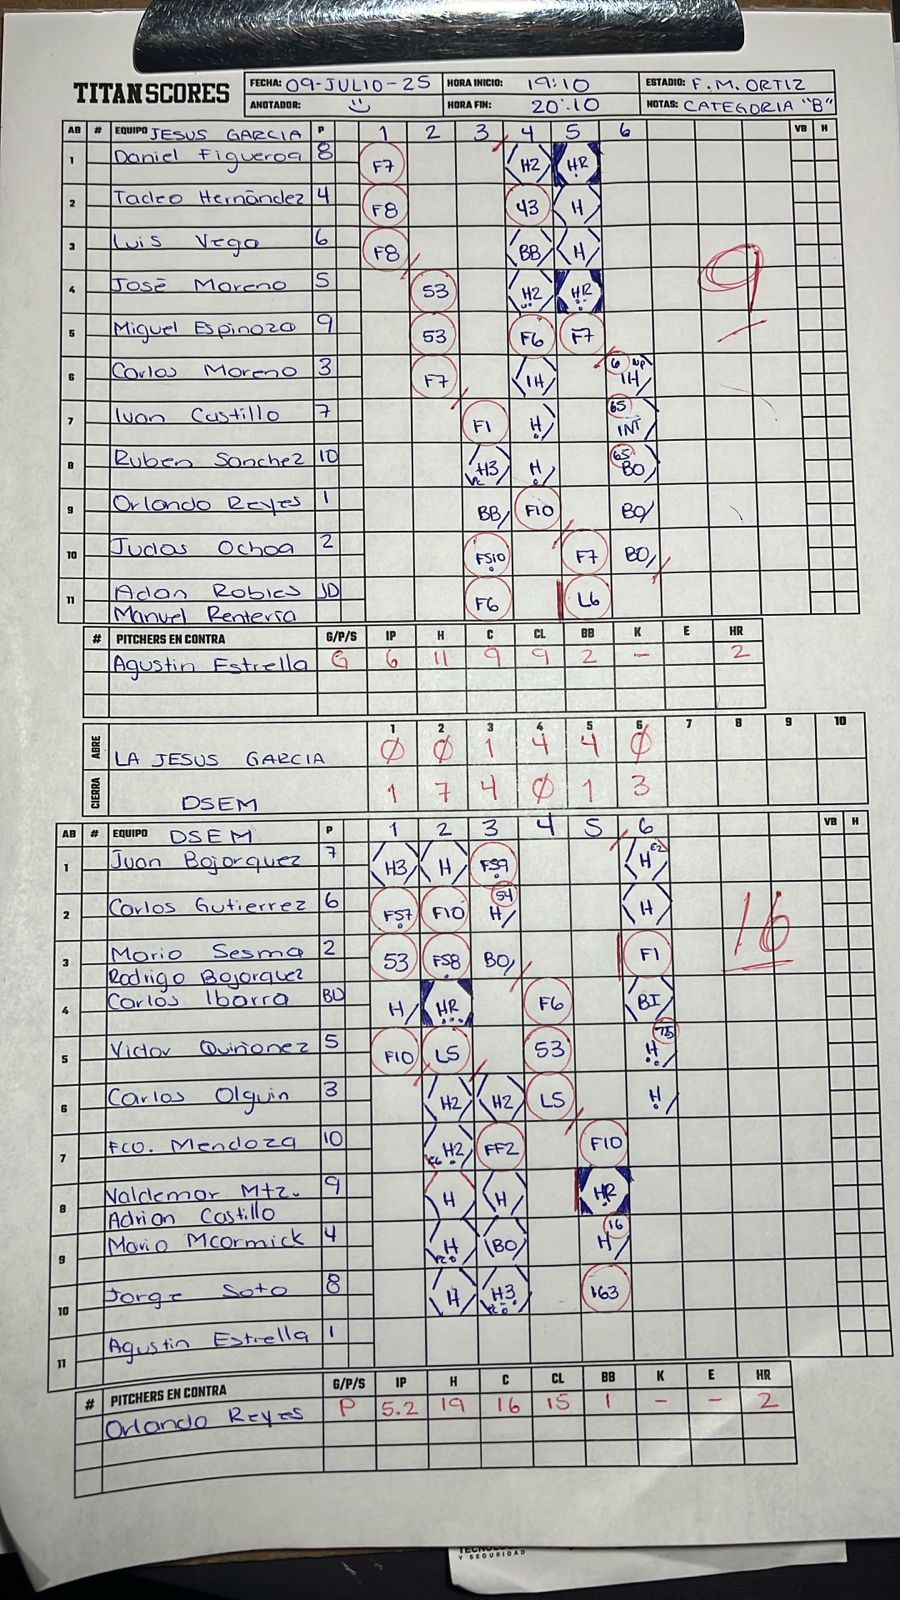 TITAN SCORES
FECHA: 09-JULIO-25 HORA INICIO: 19:10 ESTADIO: F.M. ORTIZ
ANOTADOR: HORA FIN: 20:10 NOTAS: CATEGORIA "B"
AB # EQUIPO JESUS GARCIA P 1 2 3 4 5 6 VB H
1 Daniel Figueroa 8 F7 H2 HR
2 Tadeo Hernández 4 F8 43 H
3 Luis Vega 6 F8 BB H
4 José Moreno 5 53 H2 HR
5 Miguel Espinoza 9 53 F6 F7
6 Carlos Moreno 3 F7 1H 6 1H
7 Ivan Castillo 7 F1 H 65 INT
8 Ruben Sanchez 10 H3 H 65 BO
9 Orlando Reyes 1 BB F10 BO
10 Judas Ochoa 2 FS10 F7 BO
11 Adan Robles JD F6 L6
Manuel Renteria
9
# PITCHERS EN CONTRA G/P/S IP H C CL BB K E HR
Agustin Estrella G 6 11 9 9 2 - 2
1 2 3 4 5 6 7 8 9 10
ABRE LA JESUS GARCIA Ø Ø 1 4 4 Ø
CIERRA DSEM 1 7 4 Ø 1 3
AB # EQUIPO DSEM P 1 2 3 4 5 6 VB H
1 Juan Bojorquez 7 H3 H FS9 H
2 Carlos Gutierrez 6 FS7 F10 54 H H
3 Mario Sesma 2 53 FS8 BO F1
Rodrigo Bojorquez
4 Carlos Ibarra BD H HR F6 BI
5 Victor Quiñonez 5 F10 L5 53 H
6 Carlos Olguin 3 H2 H2 L5 H
7 Fco. Mendoza 10 H2 FF2 F10
8 Valdemar Mtz. 9 H H HR
Adrion Castillo
9 Mario Mcormick 4 H BO 16 H
10 Jorge Soto 8 H H3 163
11 Agustin Estrella 1
16
# PITCHERS EN CONTRA G/P/S IP H C CL BB K E HR
Orlando Reyes P 5.2 19 16 15 1 - - 2
Y SEGURIDAD